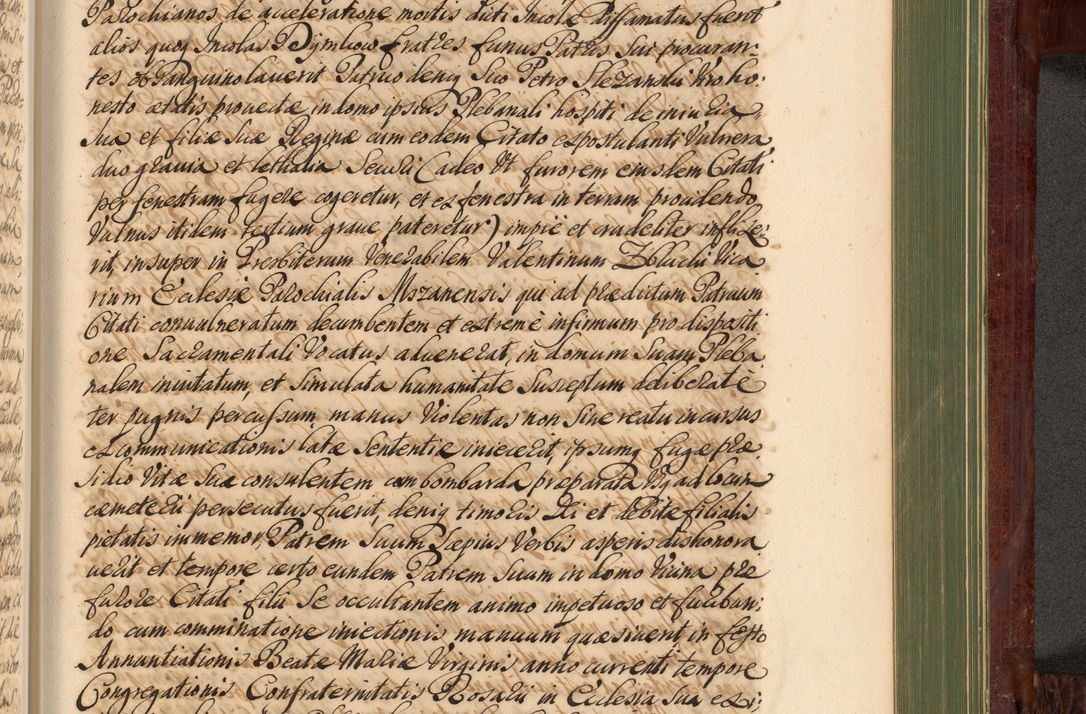 Parochianos de acceleratione mortis dicti Incolæ diffamatus fuerit
alios quoq Incolas Dymkow fratres funus Patris sui procuran-
tes obsanguinolaverit Patruo deniq suo Petro Slezanski viro ho:
nesto ætatis provectæ in domo ipsius Plebanali hospiti de iniuria
sua et filiæ suæ Reginæ cum eodem Citato expostulanti Vulnera
duo gravia et lethalia Sculi Cadeo Vt furorem eiusdem Citati
per fenestram fugere cogeretur, et ex fenestra in terram proudendo
Vulnus itidem tertium grave pateretur) impiè et crudeliter inflixe:
rit, insuper in Presbiterum Venerabilem Valentinum Vica
rium Ecclesiæ Parochialis Mszanensis qui ad prædictum Patruum
Citati convulneratum decumbentem et extremè infirmum pro dispositi
one Sacramentali Vocatus advenerat, in domum suam Pleba
nalem invitatum, et simulata humanitate susceptum deliberatè
ter pugnis percussum, manus Violentas non sine reatu incursus
excommunicationis latæ sententiæ iniecerit, ipsumq fugæ præ
sidio Vitæ suæ consulentem cum bombarda præparata Vsq ad locum
cæmeterii persecutus fuerit, deniq timoris Dei et debitæ filialis
pietatis immemor, Patrem suum sæpius Verbis asperis dishonora
verit et tempore certo eundem Patrem suum in domo Vicina præ
furore Citati filii se occultantem animo impetuoso et furibun:
do cum comminatione iniectionis manuum quæsiverit, in festo
Annuntiationis Beatæ Mariæ Virginis anno currenti tempore
Congregationis Confraternitatis Rosarii in Ecclesia sua exi: